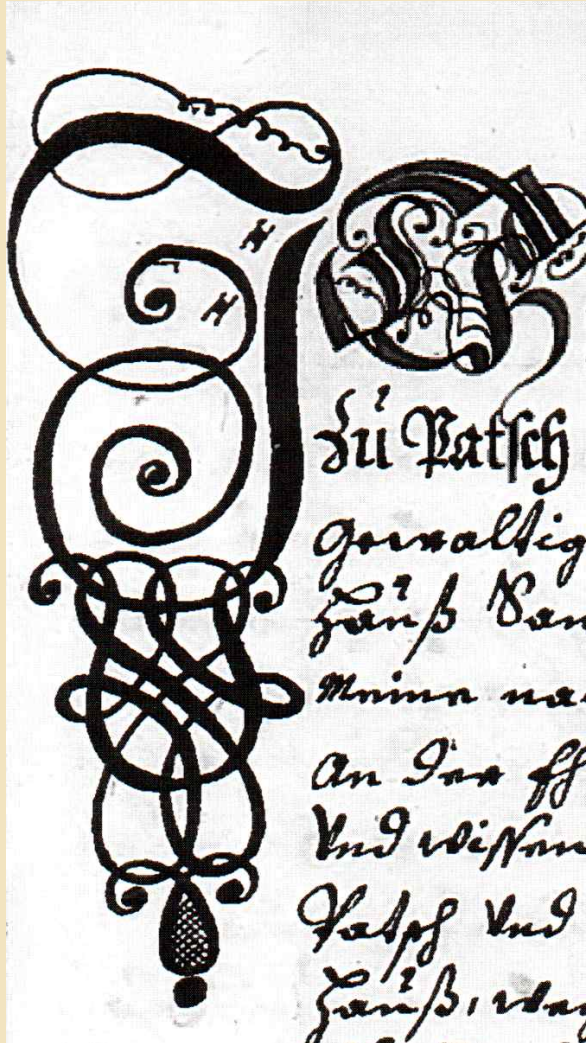 I
Zů Patsch
Gewaltig
Haůß San
Meine na
An der Eh
Vnd wissen
Patsch Vnd
Haůß, we